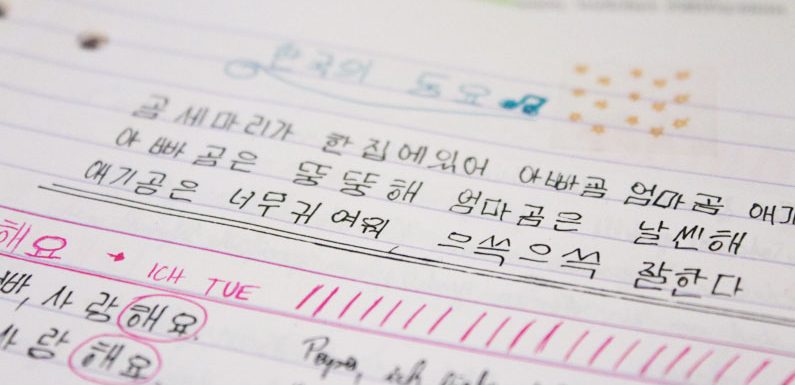 한국의 동요
곰 세마리가 한집에있어 아빠곰 엄마곰 애기
아빠곰은 뚱뚱해 엄마곰은 날씬해
애기곰은 너무귀여워, 으쓱으쓱 잘한다
해요 → ICH TUE
사랑해요.
사랑해요. Papa, ich